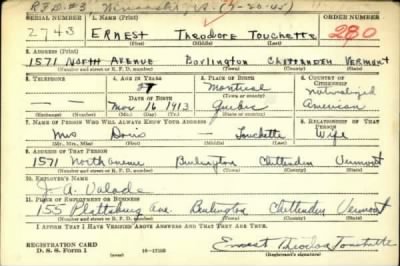 R.F.D. #3
SERIAL NUMBER 1. NAME (Print) ORDER NUMBER
2743 ERNEST THEODORE TOUCHETTE 280
(First) (Middle) (Last)
2. ADDRESS (Print)
1571 NORTH AVENUE Burlington CHITTENDEN VERMONT
(Number and street or R. F. D. number) (Town) (County) (State)
3. TELEPHONE 4. AGE IN YEARS 5. PLACE OF BIRTH 6. COUNTRY OF CITIZENSHIP
27 Montreal Naturalized
DATE OF BIRTH (Town or county)
— — Nov 16 1913 Quebec American
(Exchange) (Number) (Mo.) (Day) (Yr.) (State or country)
7. NAME OF PERSON WHO WILL ALWAYS KNOW YOUR ADDRESS 8. RELATIONSHIP OF THAT PERSON
Mrs Doris — Touchette Wife
(Mr., Mrs., Miss) (First) (Middle) (Last)
9. ADDRESS OF THAT PERSON
1571 North Avenue Burlington Chittenden Vermont
(Number and street or R. F. D. number) (Town) (County) (State)
10. EMPLOYER'S NAME
J. A. Valade
11. PLACE OF EMPLOYMENT OR BUSINESS
155 Plattsburg Ave. Burlington Chittenden Vermont
(Number and street or R. F. D. number) (Town) (County) (State)
I AFFIRM THAT I HAVE VERIFIED ABOVE ANSWERS AND THAT THEY ARE TRUE.
REGISTRATION CARD
D. S. S. Form 1 (over) 16—17105 Ernest Theodore Touchette
(Registrant's signature)